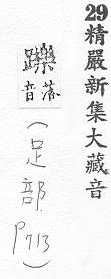 29精嚴新集大藏音
躒
音落
(足部
P713)